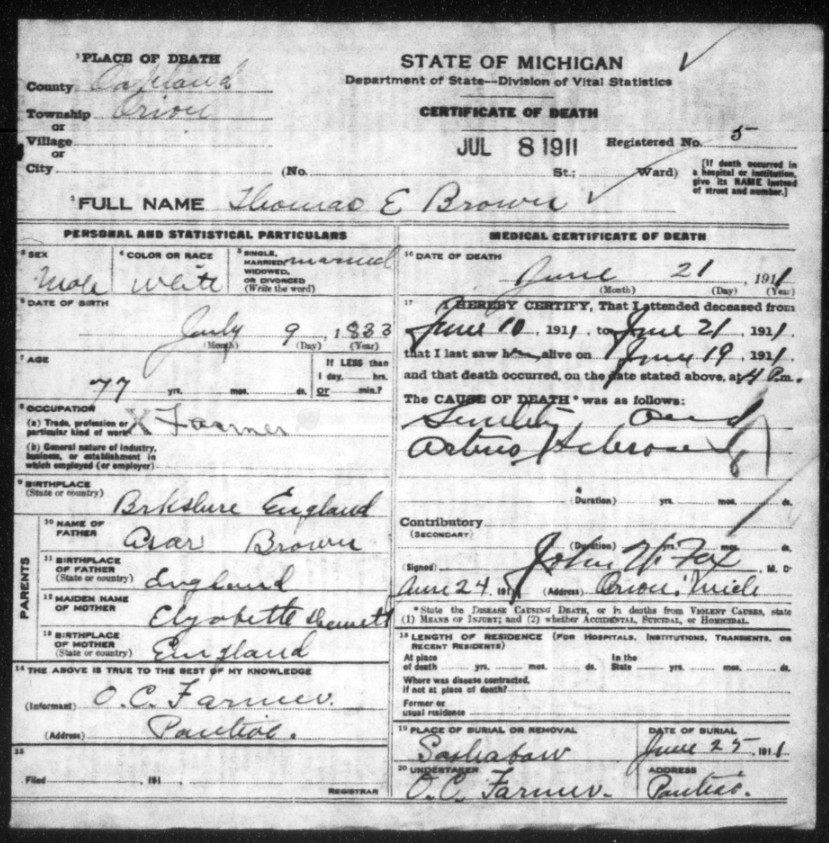 1 PLACE OF DEATH
County Oakland
Township Orion
or
Village
or
City
STATE OF MICHIGAN
Department of State—Division of Vital Statistics
CERTIFICATE OF DEATH
JUL 8 1911
Registered No. 5
(No. St.; Ward)
[If death occurred in a hospital or institution, give its NAME instead of street and number.]
2 FULL NAME Thomas E Brown
PERSONAL AND STATISTICAL PARTICULARS
3 SEX
Male
4 COLOR OR RACE
White
5 SINGLE, MARRIED, WIDOWED, OR DIVORCED (Write the word)
married
6 DATE OF BIRTH
July 9, 1833
(Month) (Day) (Year)
7 AGE
77 yrs. mos. ds.
If LESS than 1 day, hrs. or min.?
8 OCCUPATION
(a) Trade, profession or particular kind of work X Farmer
(b) General nature of industry, business, or establishment in which employed (or employer)
9 BIRTHPLACE
(State or country)
Brkshire England
PARENTS
10 NAME OF FATHER
Brown
11 BIRTHPLACE OF FATHER
(State or country)
England
12 MAIDEN NAME OF MOTHER
13 BIRTHPLACE OF MOTHER
(State or country)
England
14 THE ABOVE IS TRUE TO THE BEST OF MY KNOWLEDGE
(Informant) O. C. Farmer.
(Address) Pontiac.
15
Filed 191
REGISTRAR
MEDICAL CERTIFICATE OF DEATH
16 DATE OF DEATH
June 21, 1911
(Month) (Day) (Year)
17 I HEREBY CERTIFY, That I attended deceased from
June 10, 1911, to June 21, 1911,
that I last saw him alive on June 19, 1911,
and that death occurred, on the date stated above, at 4 P.m.
The CAUSE OF DEATH* was as follows:
Senility and
(Duration) yrs. mos. ds.
Contributory
(SECONDARY)
(Duration) yrs. mos. ds.
(Signed) John W. Fox, M. D.
June 24, 191 (Address) Orion, Mich
*State the DISEASE CAUSING DEATH, or in deaths from VIOLENT CAUSES, state (1) MEANS OF INJURY; and (2) whether ACCIDENTAL, SUICIDAL, OR HOMICIDAL.
18 LENGTH OF RESIDENCE (FOR HOSPITALS, INSTITUTIONS, TRANSIENTS, OR RECENT RESIDENTS)
At place of death yrs. mos. ds. In the State yrs. mos. ds.
Where was disease contracted, if not at place of death?
Former or usual residence
19 PLACE OF BURIAL OR REMOVAL
Sashabaw
DATE OF BURIAL
June 25, 1911
20 UNDERTAKER
O. C. Farmer.
ADDRESS
Pontiac.